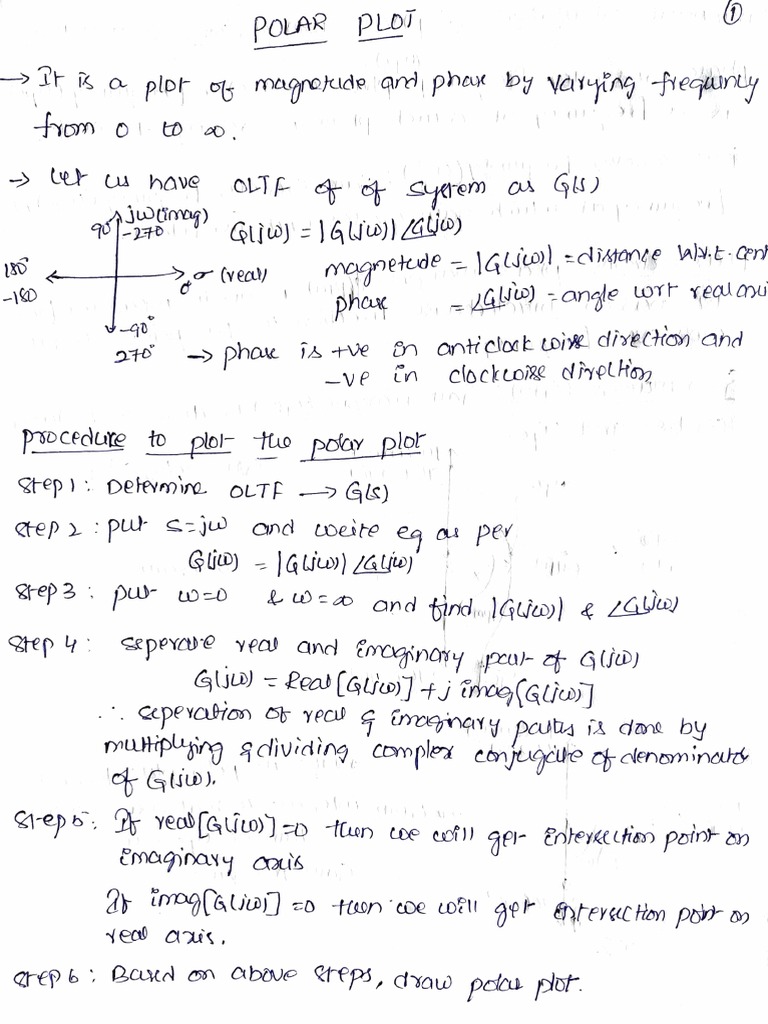 ①
POLAR PLOT
→ It is a plot of magnetude and phase by varying frequency
from 0 to ∞.
→ Let us have OLTF of of system as G(s)
jω(imag)
90° -270°
180° -180
0° σ (real)
-90°
270°
G(jω) = |G(jω)| ∠G(jω)
magnetude = |G(jω)| = distance w.r.t. cent
phase = ∠G(jω) = angle wrt real axi
→ phase is +ve in anticlock wise direction and
-ve in clockwise direction.
procedure to plot the polar plot
Step 1 : Determine OLTF → G(s)
Step 2 : put s=jω and write eq as per
G(jω) = |G(jω)| ∠G(jω)
Step 3 : put ω=0 & ω=∞ and find |G(jω)| & ∠G(jω)
Step 4 : seperate real and imaginary part of G(jω)
G(jω) = Real[G(jω)] + j imag[G(jω)]
∴ seperation of real & imaginary parts is done by
multiplying & dividing complex conjugate of denominator
of G(jω).
Step 5 : If real[G(jω)]=0 then we will get intersection point on
imaginary axis
If imag[G(jω)]=0 then we will get intersection point on
real axis.
Step 6 : Based on above steps, draw polar plot.